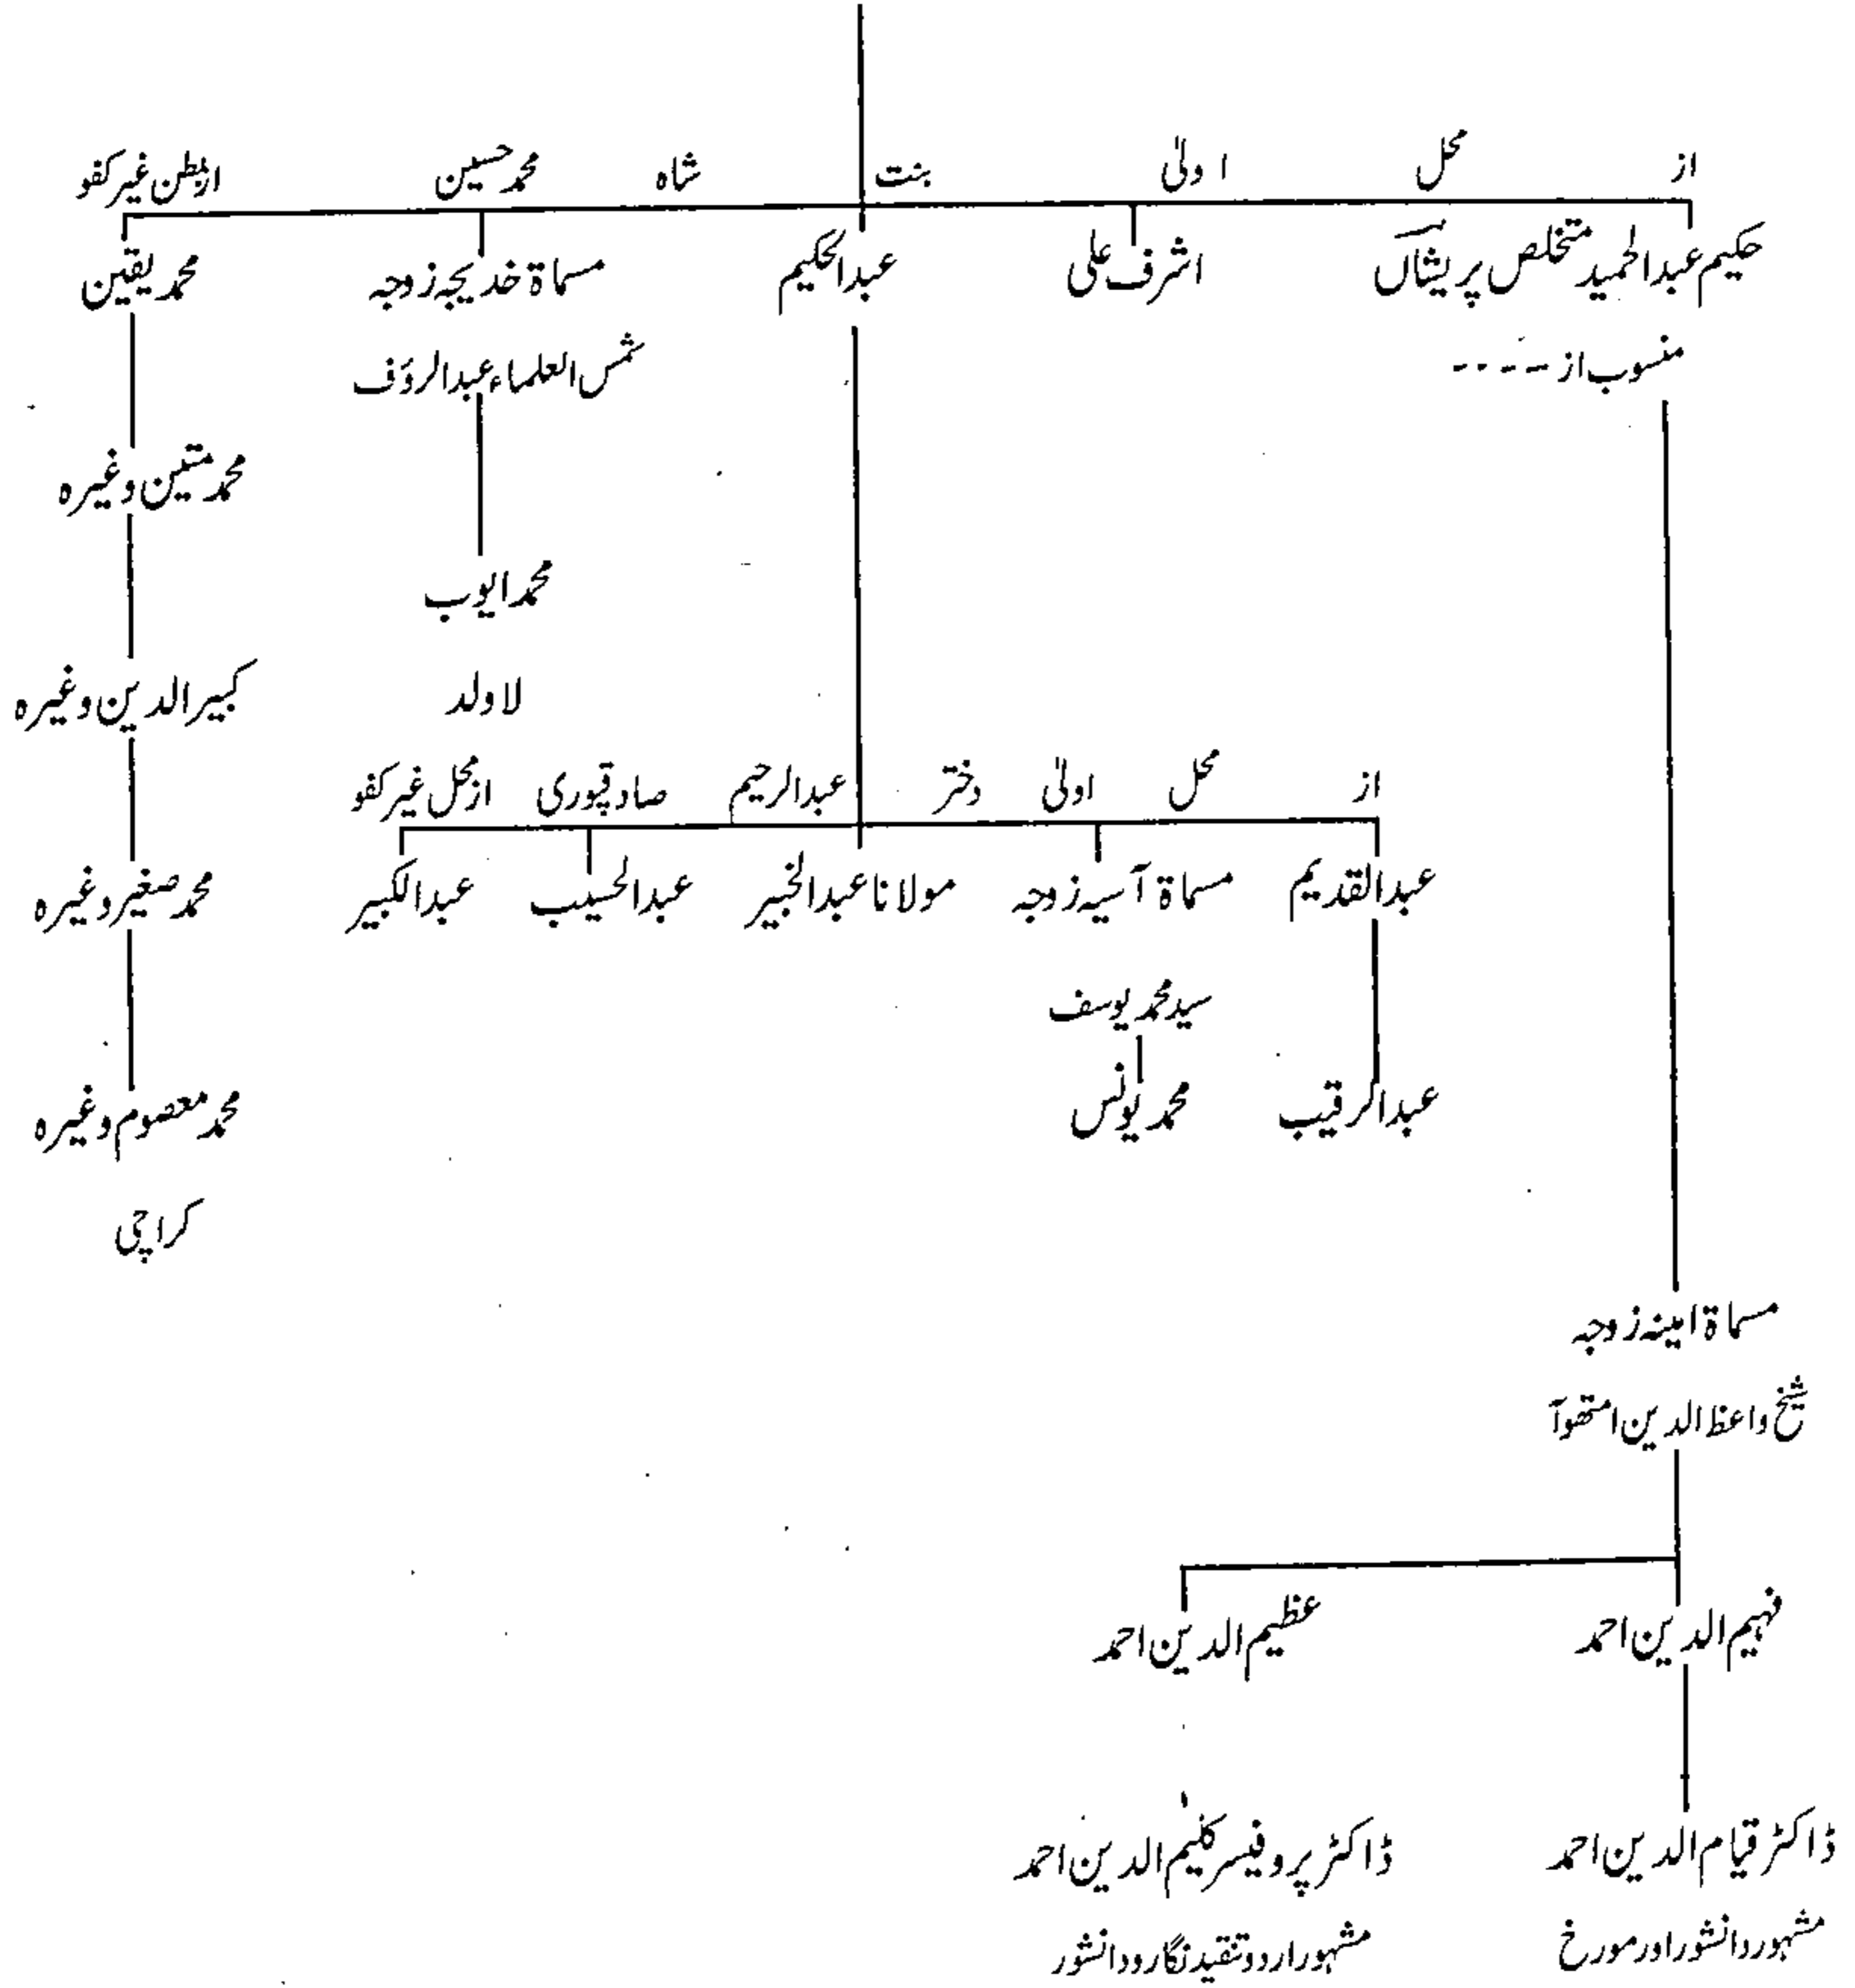 از محل اولیٰ بنت شاہ محمد حسین ازبطن غیر کفو
حکیم عبدالحمید متخلص پریشاںؔ اشرف علی عبدالحکیم مسماۃ خدیجہ زوجہ محمد یقین
منسوب از ----- شمس العلماء عبدالرؤف
محمد متین وغیرہ
محمد ایوب
لا ولد کبیر الدین وغیرہ
از محل اولیٰ دختر عبدالرحیم صادقپوری از محل غیر کفو
عبدالقدیم مسماۃ آسیہ زوجہ مولانا عبدالخبیر عبدالحسیب عبدالکبیر محمد صغیر وغیرہ
سید محمد یوسف
عبدالرقیب محمد یونس محمد معصوم وغیرہ
کراچی
مسماۃ امینہ زوجہ
شیخ واعظ الدین
فہیم الدین احمد عظیم الدین احمد
ڈاکٹر قیام الدین احمد ڈاکٹر پروفیسر کلیم الدین احمد
مشہور دانشور اور مورخ مشہور اردو تنقید نگار ودانشور